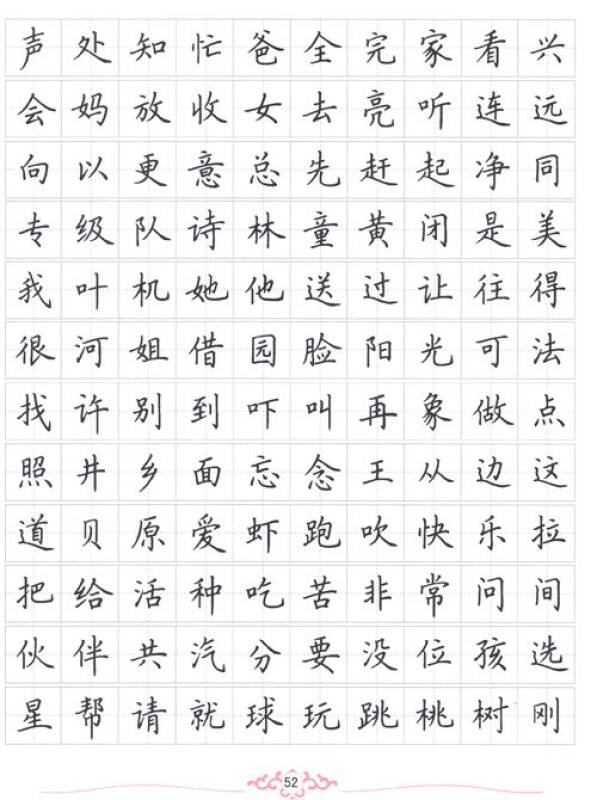 声处知忙爸全完家看兴
会妈放收女去亮听连远
向以更意总先赶起净同
专级队诗林童黄闭是美
我叶机她他送过让往得
很河姐借园脸阳光可法
找许别到吓叫再象做点
照井乡面忘念王从边这
道贝原爱虾跑吹快乐拉
把给活种吃苦非常问间
伙伴共汽分要没位孩选
星帮请就球玩跳桃树刚
52